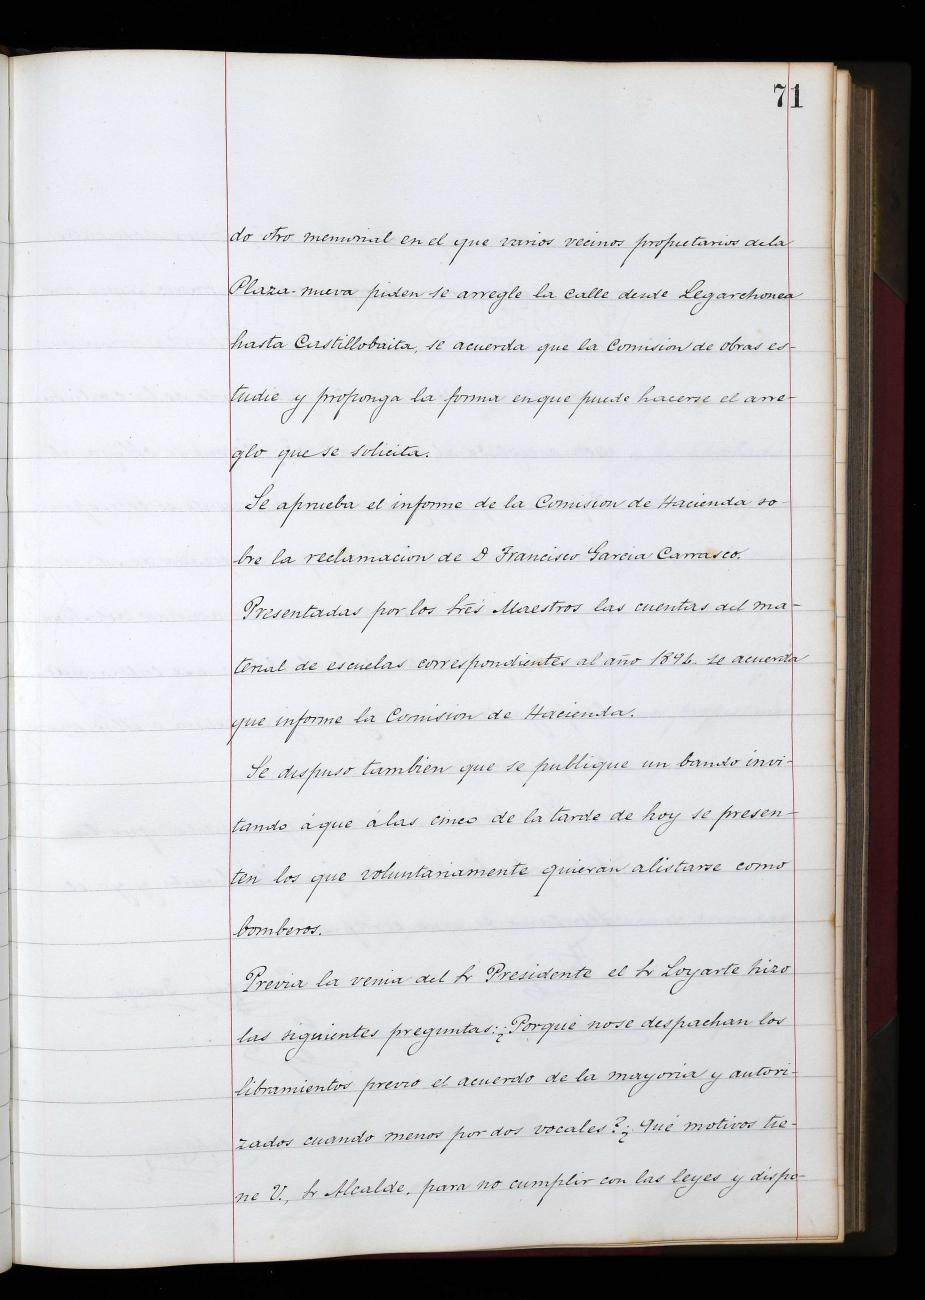 71
do otro memorial en el que varios vecinos propietarios de la
Plaza-nueva piden se arregle la calle desde Legarchonea
hasta Castillobaita, se acuerda que la Comision de obras es-
tudie y proponga la forma en que puede hacerse el arre-
glo que se solicita.
Se aprueba el informe de la Comision de Hacienda so-
bre la reclamacion de D Francisco Garcia Carrasco.
Presentadas por los tres Maestros las cuentas del ma-
terial de escuelas correspondientes al año 1896. se acuerda
que informe la Comision de Hacienda.
Se dispuso tambien que se publique un bando invi-
tando á que á las cinco de la tarde de hoy se presen-
ten los que voluntariamente quieran alistarse como
bomberos.
Previa la venia del Sr Presidente el Sr Loyarte hizo
las siguientes preguntas: ¿Porqué no se despachan los
libramientos previo el acuerdo de la mayoria y autori-
zados cuando menos por dos vocales? ¿Qué motivos tie-
ne V., Sr Alcalde, para no cumplir con las leyes y dispo-